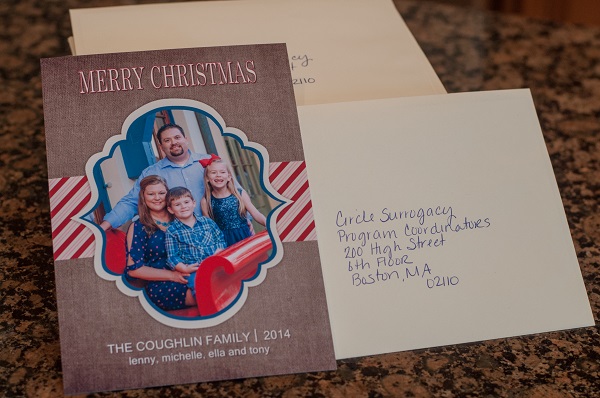 MERRY CHRISTMAS
THE COUGHLIN FAMILY | 2014
lenny, michelle, ella and tony
Circle Surrogacy
Program Coordinators
200 High Street
6th Floor
Boston, MA
02110
02110